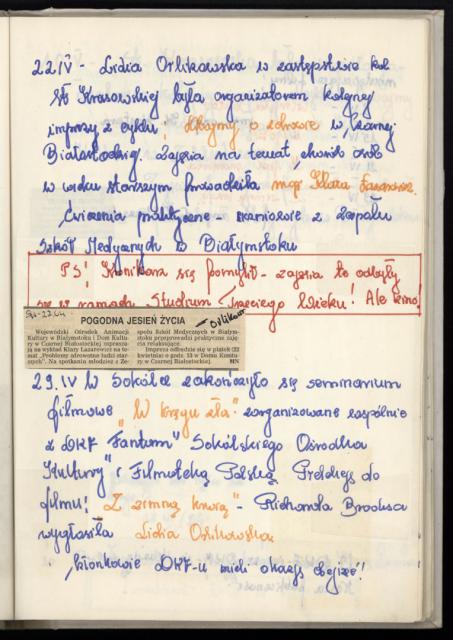 22 IV - Lidia Orlikowska w zastępstwie kol
St. Krasowskiej była organizatorem kolejnej
imprezy z cyklu: Dbajmy o zdrowie w Czarnej
Białostockiej. Zajęcia na temat, chorób osób
w wieku starszym prowadziła mgr Klara Łazarewicz.
Ćwiczenia praktyczne - uczniowie z Zespołu
Szkół Medycznych w Białymstoku
PS! Kronikarz się pomylił - zajęcia te odbyły
się w ramach Studium Trzeciego Wieku! Ale kino!
22.04
Orlikow
POGODNA JESIEŃ ŻYCIA
Wojewódzki Ośrodek Animacji
Kultury w Białymstoku i Dom Kultu-
ry w Czarnej Białostockiej zaprasza-
ją na wykład Klary Łazarewicz na te-
mat „Problemy zdrowotne ludzi star-
szych". Na spotkaniu młodzież z Ze-
społu Szkół Medycznych w Białym-
stoku przeprowadzi praktyczne zaję-
cia relaksujące.
Impreza odbędzie się w piątek (22
kwietnia) o godz. 13 w Domu Kultu-
ry w Czarnej Białostockiej. MN
29.IV w Sokółce zakończyło się seminarium
filmowe "W kręgu zła" zorganizowane wspólnie
z DKF "Fantom" Sokólskiego Ośrodka
Kultury" i Filmoteką Polską. Prelekcję do
filmu: "Z zimną krwią" - Richarda Brooksa
wygłosiła Lidia Orlikowska.
Członkowie DKF-u mieli okazję obejrzeć!